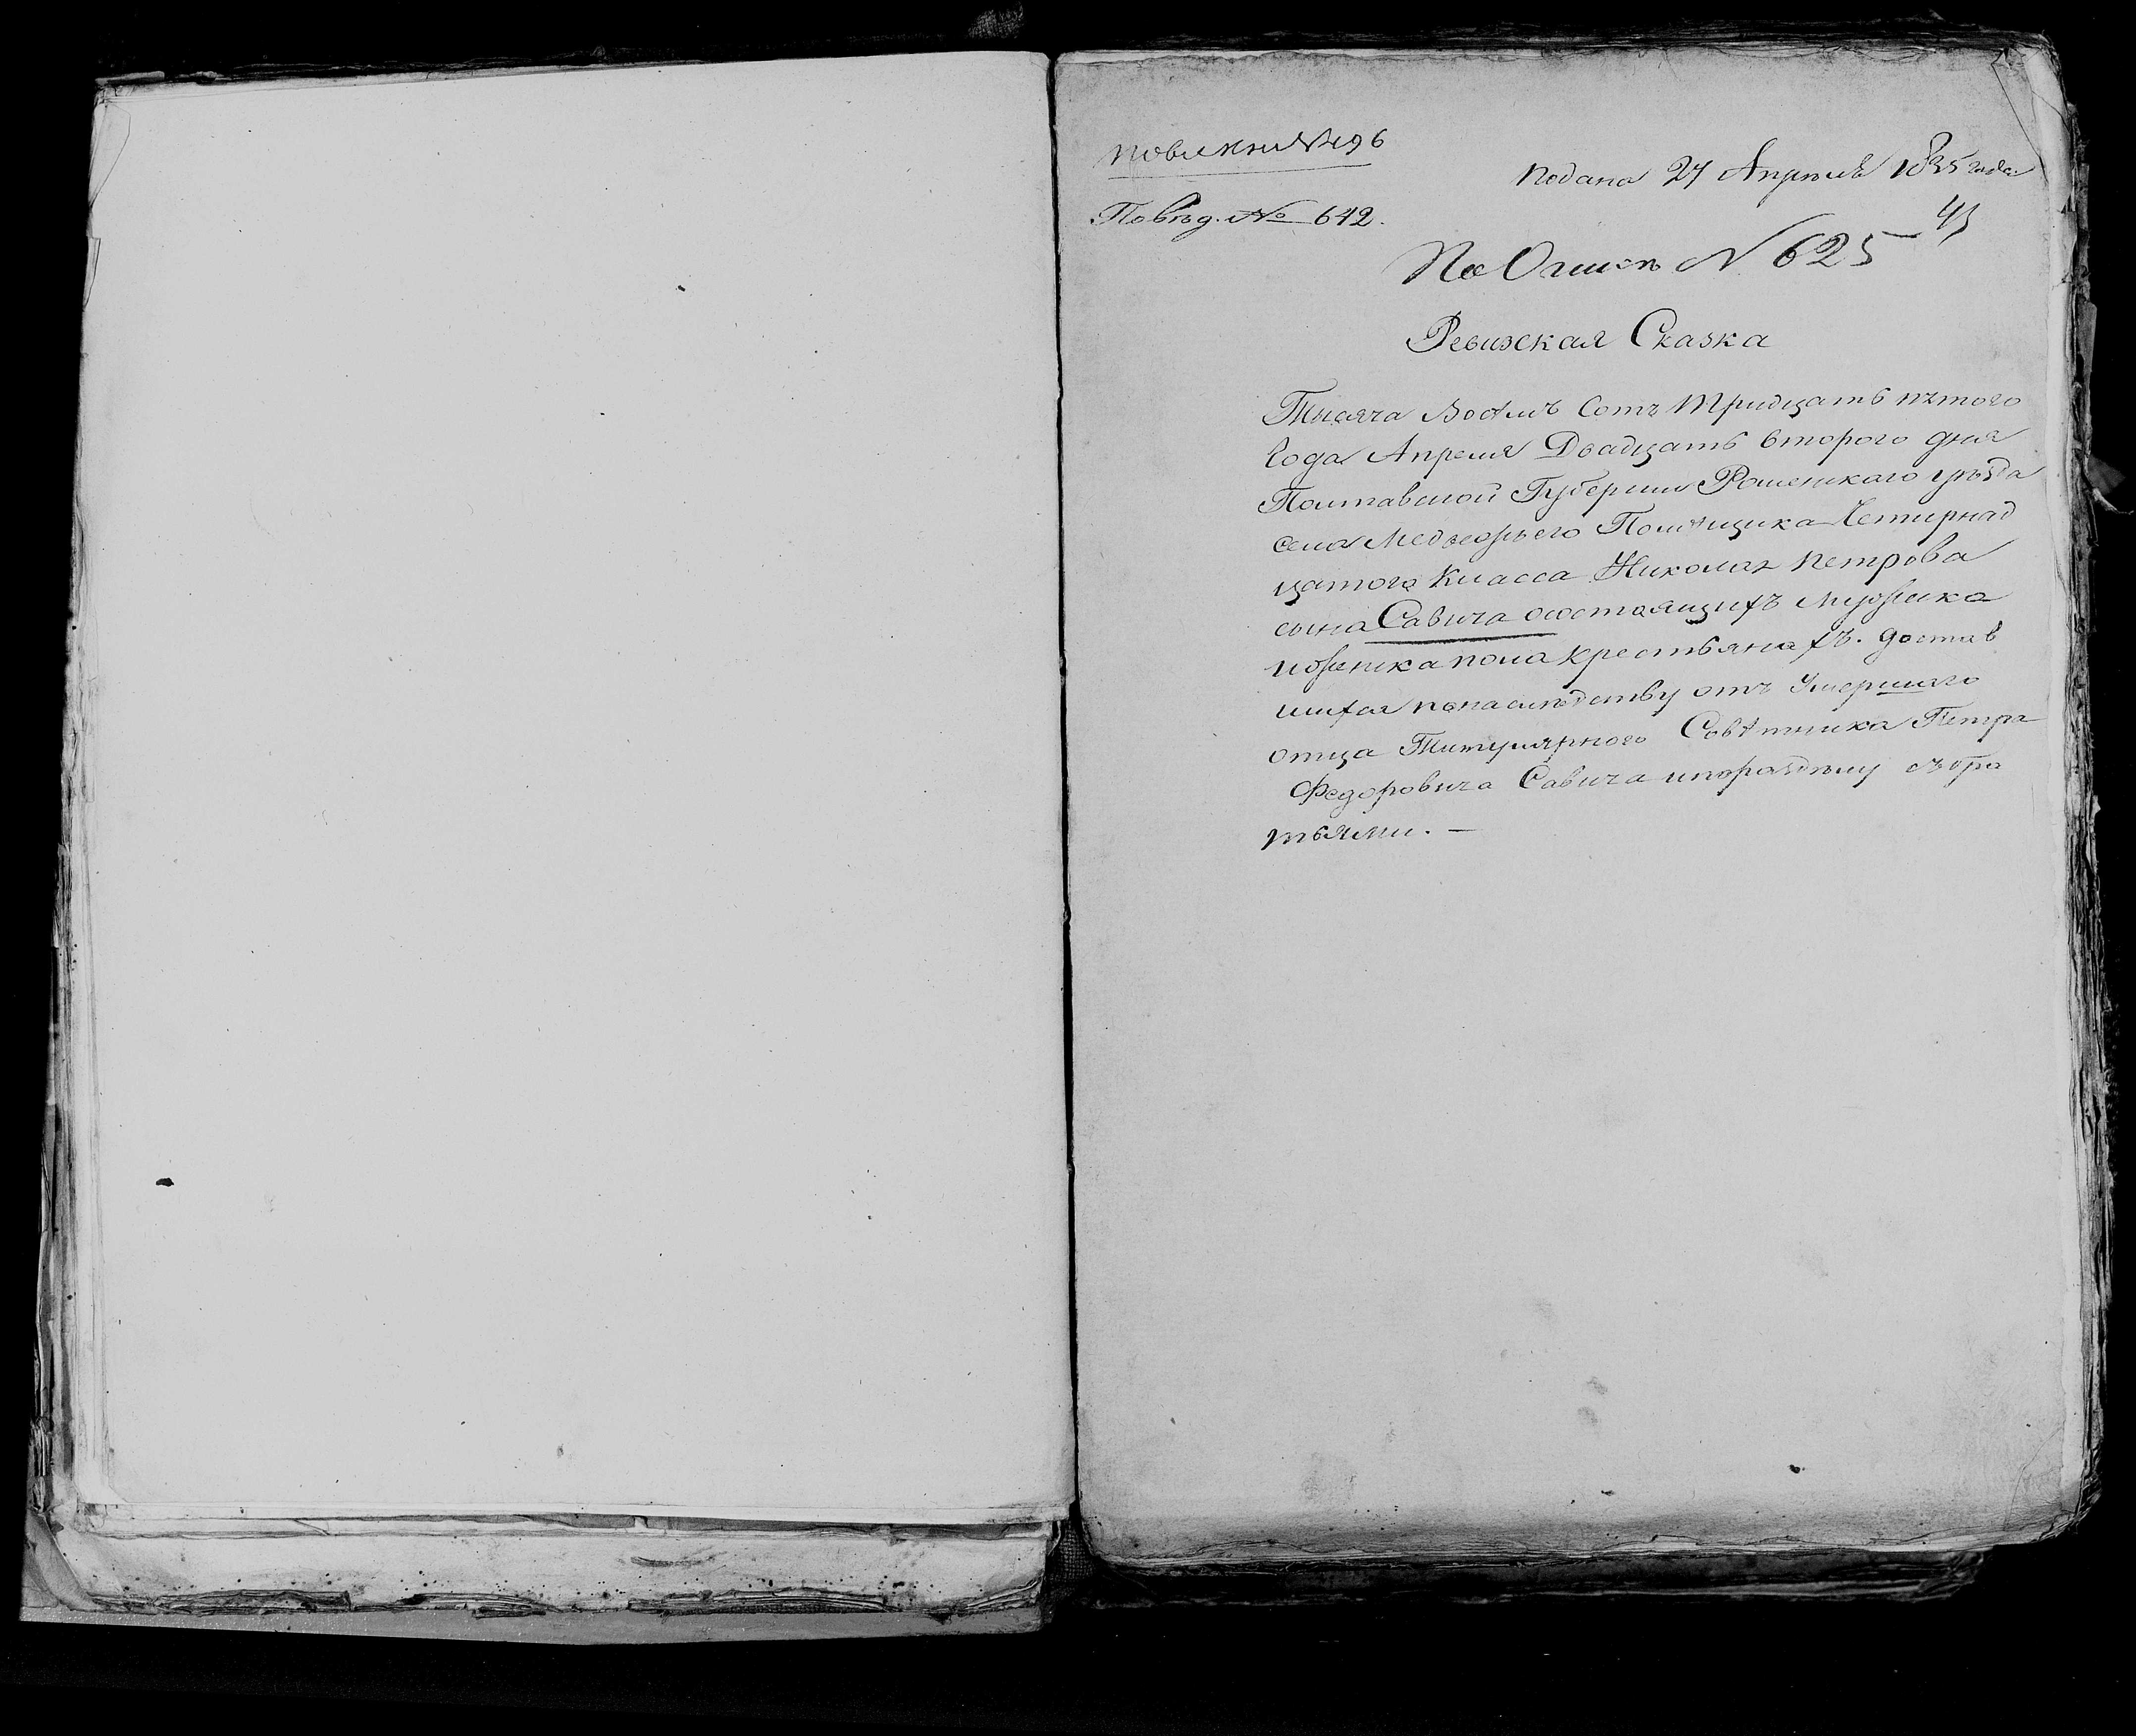 № 496
Подана 27 Апреля 1835 года
По вѣд. № 642.
43
По Описи № 625
Ревизская Сказка
Тысяча Восемь Сотъ Тридцать пятого
Года Апреля Двадцать второго дня
Полтавской Губернии Роменскаго уѣзда
села Медвежьего Помещика Четирнад
цатого Класса Николая Петрова
сына Савича о состоящихъ мужеска
и женска пола крестьянахъ. достав
шихся по наследству отъ Умершаго
отца Титулярного Советника Петра
Федоровича Савича и по разделу съ бра
тьями. —